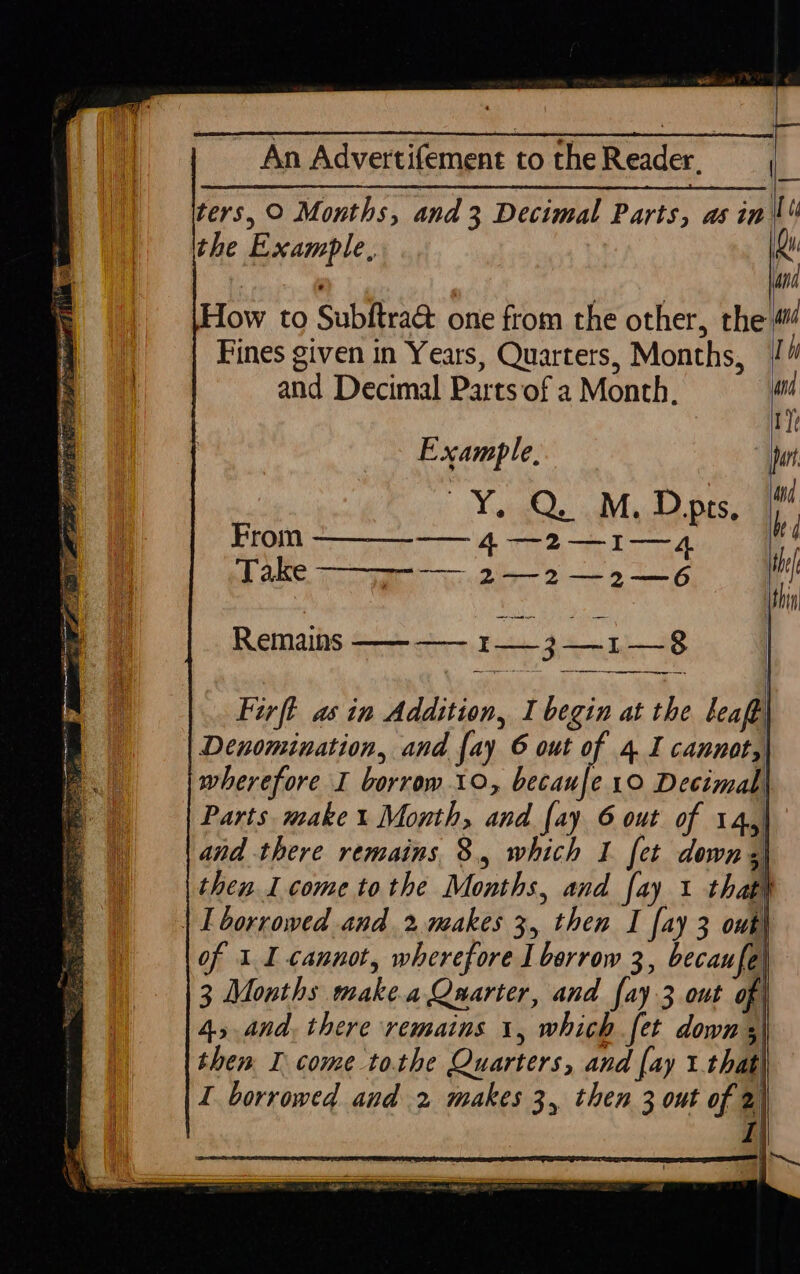 An Advertiſement to the Reader.
ters, 0 Months, and 3 Decimal Parts, as in
the Example.
How to Subſtract one from the other, the
Fines given in Years, Quarters, Months,
and Decimal Parts of a Month.
Example.
Y. Q. M. D.pts.
From ——— 4—2—1—4
Take ——— 2—2—2—6
Remains ——— 1—3—1—8
Firſt as in Addition, I begin at the leaſt
Denomination, and ſay 6 out of 4 I cannot,
wherefore I borrow 10, becauſe 10 Decimal
Parts make 1 Month, and ſay 6 out of 14,
and there remains 8, which I ſet down;
then I come to the Months, and ſay 1 that
I borrowed and 2 makes 3, then I ſay 3 out
of 1 I cannot, wherefore I borrow 3, becauſe
3 Months make a Quarter, and ſay 3 out of
4, and there remains 1, which ſet down;
then I come to the Quarters, and ſay 1 that
I borrowed and 2 makes 3, then 3 out of 2
I